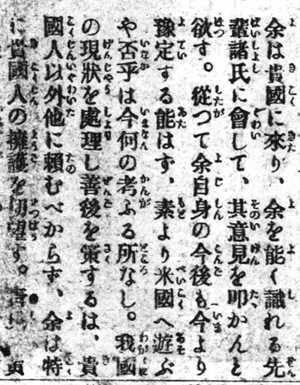 余は貴國に來り、余を能く識れる先
輩諸氏に會して、其意見を叩かんと
欲す。從つて余自身の今後も今より
豫定する能はず、素より米國へ遊ぶ
や否乎は今何の考ふる所なし。我國
の現狀を處理し善後を策するは、貴
國人以外他に賴むべからず、余は特
に貴國人の擁護を切望す。